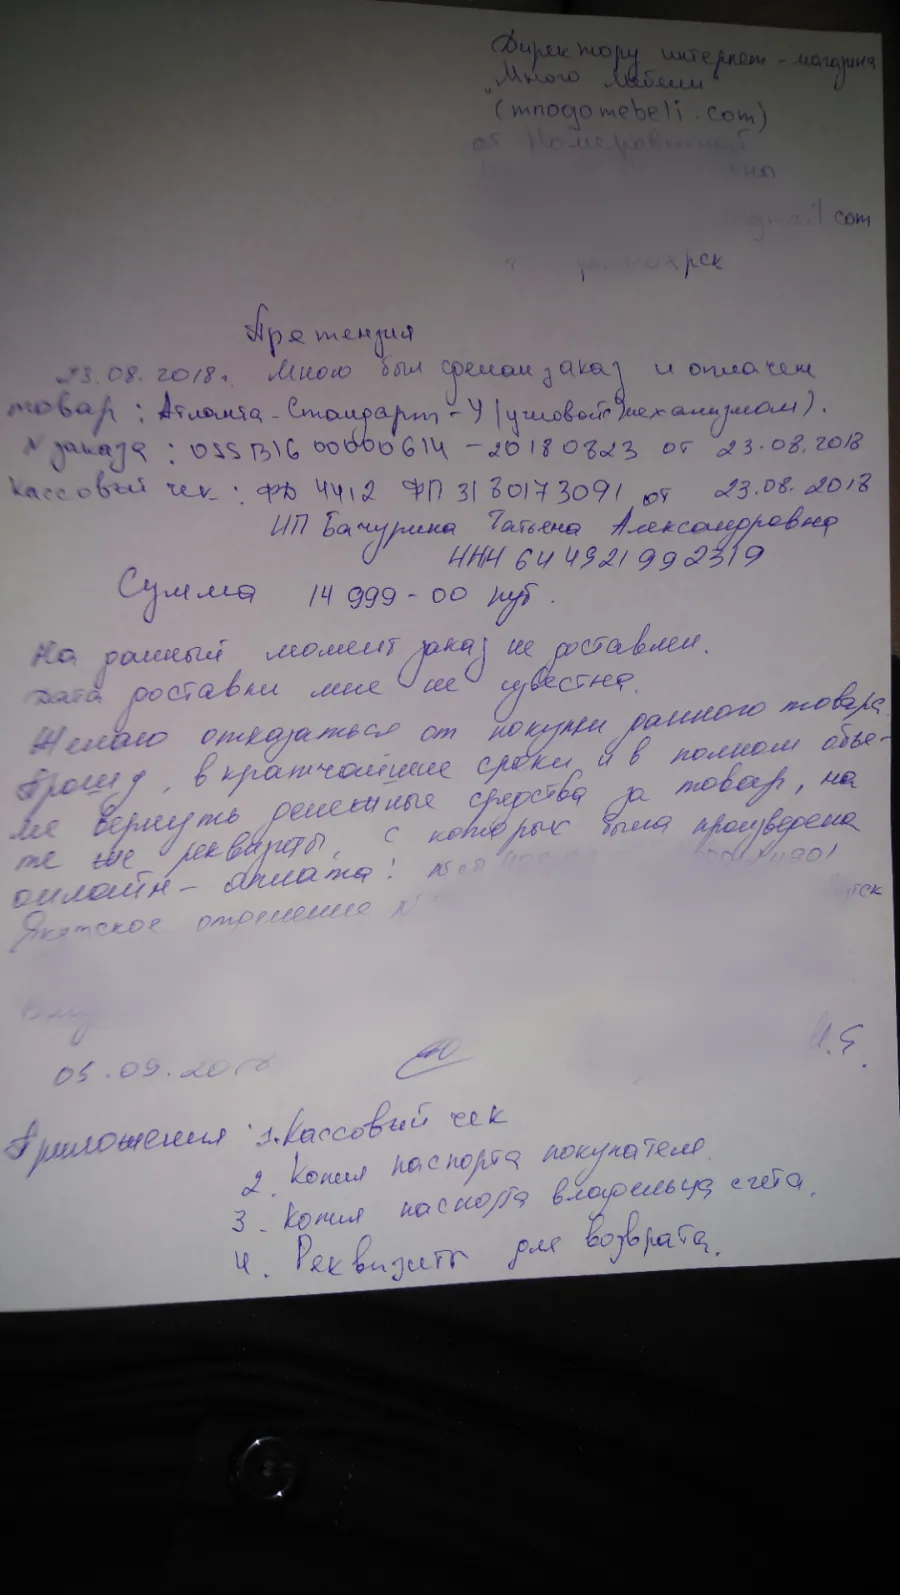 Директору интернет-магазина
"Много Мебели"
(mnogomebeli.com)
от
ны
gmail.com
рск
Претензия
23.08.2018г. Мною был сделан заказ и оплачен
товар: Атланта-Стандарт-У (угловой механизмом).
N заказа: 0SSB1600000614-20180823 от 23.08.2018
Кассовый чек: ФД 4412 ФП 3180173091 от 23.08.2018
ИП Бачурина Татьяна Александровна
ИНН 644921992319
Сумма 14 999-00 руб.
На данный момент заказ не доставлен.
Дата доставки мне не известна.
Желаю отказаться от покупки данного товара.
Прошу, в кратчайшие сроки и в полном объе-
ме вернуть денежные средства за товар, на
те же реквизиты, с которых была произведена
онлайн-оплата:
Якутское отделение N
05.09.2018
Приложения: 1. Кассовый чек
2. Копия паспорта покупателя.
3. Копия паспорта владельца счета.
4. Реквизиты для возврата.